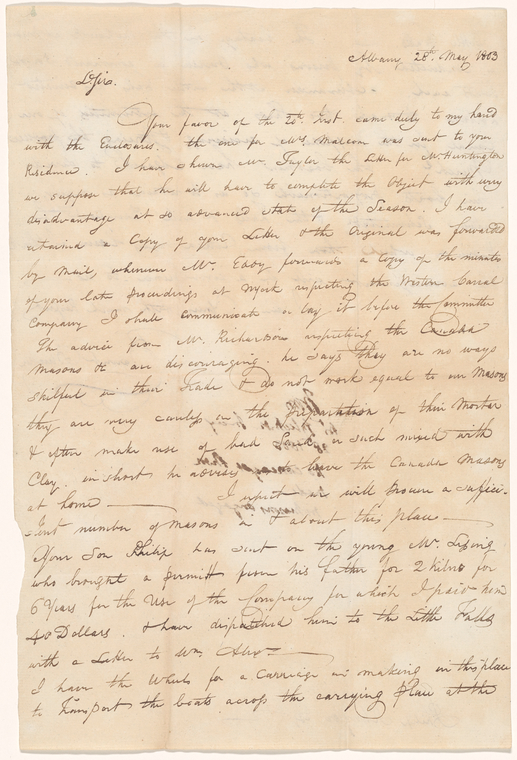 Albany, 28th May 1803
Dr Sir.
Your favor of the 20th Inst. came duly to my hand
with the Enclosures. the one for Mr. Marcom was sent to your
Residence. I have shewn Mr. Taylor the Letter for Mr Huntington
we suppose that he will have to complete the Object with very
disadvantage at so advanced State of the Season. I have
retained a Copy of your Letter & the Original was forwarded
by Mail, whenever Mr. Eddy forwards a Copy of the minutes
of your late proceedings at respecting the Western Canal
Company I shall communicate or lay it before the Committee
The advice from Mr. Richardson respecting the Canada
Masons &c are discouraging. he says they are no ways
skilful in their Trade & do not work equal to our Masons
they are very careless in the preparation of their Mortar
& often make use of bad Sand, or such mixed with
Clay. in short he advises to leave the Canada Masons
at home I expect we will procure a suffici-
-ent number of Masons in & about this place
Your Son Philip has sent on the young Mr.
who brought a permitt from his father for 2 Kilns for
6 Years for the Use of the Company for which I paid him
40 Dollars. & have dispatched him to the Little Falls
with a Letter to Wm. Alexr
I have the Wheels for a Carriage in making in this place
to Transport the boats across the carrying place at the